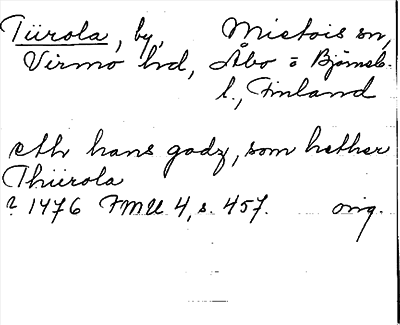 Tiirola, by, Mietois sn,
Virmo hd, Åbo o Björneb.
l., Finland
eth hans godz, som hether
Thiirola
? 1476 FMU 4, s. 457. orig.